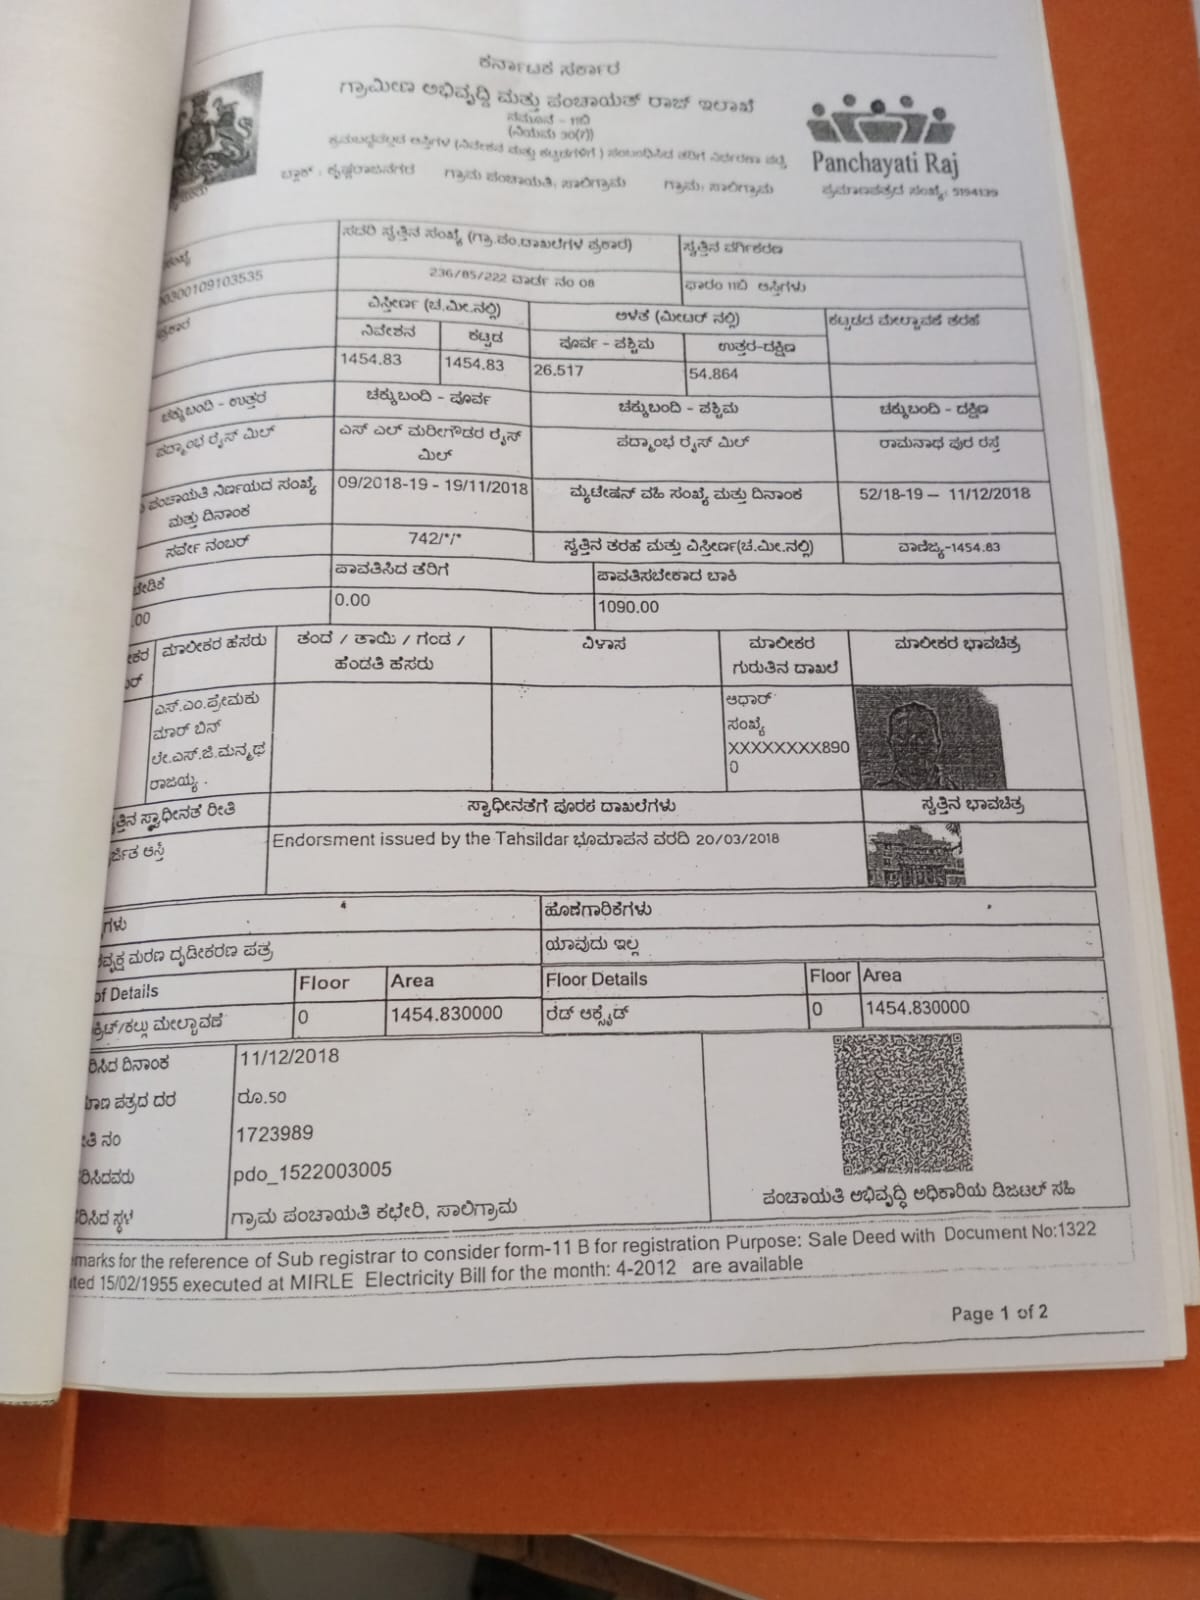 ಕರ್ನಾಟಕ ಸರ್ಕಾರ
ಗ್ರಾಮೀಣ ಅಭಿವೃದ್ಧಿ ಮತ್ತು ಪಂಚಾಯತ್ ರಾಜ್ ಇಲಾಖೆ
ನಮೂನೆ - 11ಬಿ
(ನಿಯಮ 30(7))
ಕ್ರಮಬದ್ಧವಲ್ಲದ ಆಸ್ತಿಗಳ (ನಿವೇಶನ ಮತ್ತು ಕಟ್ಟಡಗಳಿಗೆ ) ಸಂಬಂಧಿಸಿದ ತೆರಿಗೆ ನಿರ್ಧರಣಾ ಪಟ್ಟಿ
Panchayati Raj
ಬ್ಲಾಕ್ : ಕೃಷ್ಣರಾಜನಗರ ಗ್ರಾಮ ಪಂಚಾಯತಿ: ಸಾಲಿಗ್ರಾಮ ಗ್ರಾಮ: ಸಾಲಿಗ್ರಾಮ ಪ್ರಮಾಣಪತ್ರದ ಸಂಖ್ಯೆ: 5194139
ಸಂಖ್ಯೆ ಸದರಿ ಸ್ವತ್ತಿನ ಸಂಖ್ಯೆ (ಗ್ರಾ.ಪಂ.ದಾಖಲೆಗಳ ಪ್ರಕಾರ) ಸ್ವತ್ತಿನ ವರ್ಗೀಕರಣ
00300109103535 236/85/222 ವಾರ್ಡ ನಂ 08 ಫಾರಂ 11ಬಿ ಆಸ್ತಿಗಳು
ಪ್ರಕಾರ ವಿಸ್ತೀರ್ಣ (ಚ.ಮೀ.ನಲ್ಲಿ) ಅಳತೆ (ಮೀಟರ್ ನಲ್ಲಿ) ಕಟ್ಟಡದ ಮೇಲ್ಚಾವಣಿ ತರಹೆ
ನಿವೇಶನ ಕಟ್ಟಡ ಪೂರ್ವ - ಪಶ್ಚಿಮ ಉತ್ತರ-ದಕ್ಷಿಣ
1454.83 1454.83 26.517 54.864
ಚಕ್ಕುಬಂದಿ - ಉತ್ತರ ಚಕ್ಕುಬಂದಿ - ಪೂರ್ವ ಚಕ್ಕುಬಂದಿ - ಪಶ್ಚಿಮ ಚಕ್ಕುಬಂದಿ - ದಕ್ಷಿಣ
ಪದ್ಮಾಂಭ ರೈಸ್ ಮಿಲ್ ಎಸ್ ಎಲ್ ಮರೀಗೌಡರ ರೈಸ್ ಪದ್ಮಾಂಭ ರೈಸ್ ಮಿಲ್ ರಾಮನಾಥ ಪುರ ರಸ್ತೆ
ಮಿಲ್
ಪಂಚಾಯತಿ ನಿರ್ಣಯದ ಸಂಖ್ಯೆ 09/2018-19 - 19/11/2018 ಮ್ಯುಟೇಷನ್ ವಹಿ ಸಂಖ್ಯೆ ಮತ್ತು ದಿನಾಂಕ 52/18-19 – 11/12/2018
ಮತ್ತು ದಿನಾಂಕ
ಸರ್ವೇ ನಂಬರ್ 742/*/* ಸ್ವತ್ತಿನ ತರಹೆ ಮತ್ತು ವಿಸ್ತೀರ್ಣ(ಚ.ಮೀ.ನಲ್ಲಿ) ವಾಣಿಜ್ಯ-1454.83
ಬೇಡಿಕೆ ಪಾವತಿಸಿದ ತೆರಿಗೆ ಪಾವತಿಸಬೇಕಾದ ಬಾಕಿ
.00 0.00 1090.00
ಮಾಲೀಕರ ಹೆಸರು ತಂದೆ / ತಾಯಿ / ಗಂಡ / ವಿಳಾಸ ಮಾಲೀಕರ ಮಾಲೀಕರ ಭಾವಚಿತ್ರ
ಹೆಂಡತಿ ಹೆಸರು ಗುರುತಿನ ದಾಖಲೆ
ಎಸ್.ಎಂ.ಪ್ರೇಮಕು ಆಧಾರ್
ಮಾರ್ ಬಿನ್ ಸಂಖ್ಯೆ
ಲೇ.ಎಸ್.ಜಿ.ಮನ್ಮಥ XXXXXXXX890
ರಾಜಯ್ಯ . 0
ತ್ತಿನ ಸ್ವಾಧೀನತೆ ರೀತಿ ಸ್ವಾಧೀನತೆಗೆ ಪೂರಕ ದಾಖಲೆಗಳು ಸ್ವತ್ತಿನ ಭಾವಚಿತ್ರ
ರ್ಜಿತ ಆಸ್ತಿ Endorsment issued by the Tahsildar ಭೂಮಾಪನ ವರದಿ 20/03/2018
ಗಳು ಹೊಣೆಗಾರಿಕೆಗಳು
ವೃಕ್ಷ ಮರಣ ದೃಡೀಕರಣ ಪತ್ರ ಯಾವುದು ಇಲ್ಲ
of Details Floor Area Floor Details Floor Area
ಕ್ರಿಟ್/ಕಲ್ಲು ಮೇಲ್ಚಾವಣೆ 0 1454.830000 ರೆಡ್ ಆಕ್ಸೈಡ್ 0 1454.830000
ರಿಸಿದ ದಿನಾಂಕ 11/12/2018
ಮಾಣ ಪತ್ರದ ದರ ರೂ.50
ತಿ ನಂ 1723989
ರಿಸಿದವರು pdo_1522003005
ರಿಸಿದ ಸ್ಥಳ ಗ್ರಾಮ ಪಂಚಾಯತಿ ಕಛೇರಿ, ಸಾಲಿಗ್ರಾಮ
ಪಂಚಾಯತಿ ಅಭಿವೃದ್ಧಿ ಅಧಿಕಾರಿಯ ಡಿಜಟಲ್ ಸಹಿ
marks for the reference of Sub registrar to consider form-11 B for registration Purpose: Sale Deed with Document No:1322
ted 15/02/1955 executed at MIRLE Electricity Bill for the month: 4-2012 are available
Page 1 of 2